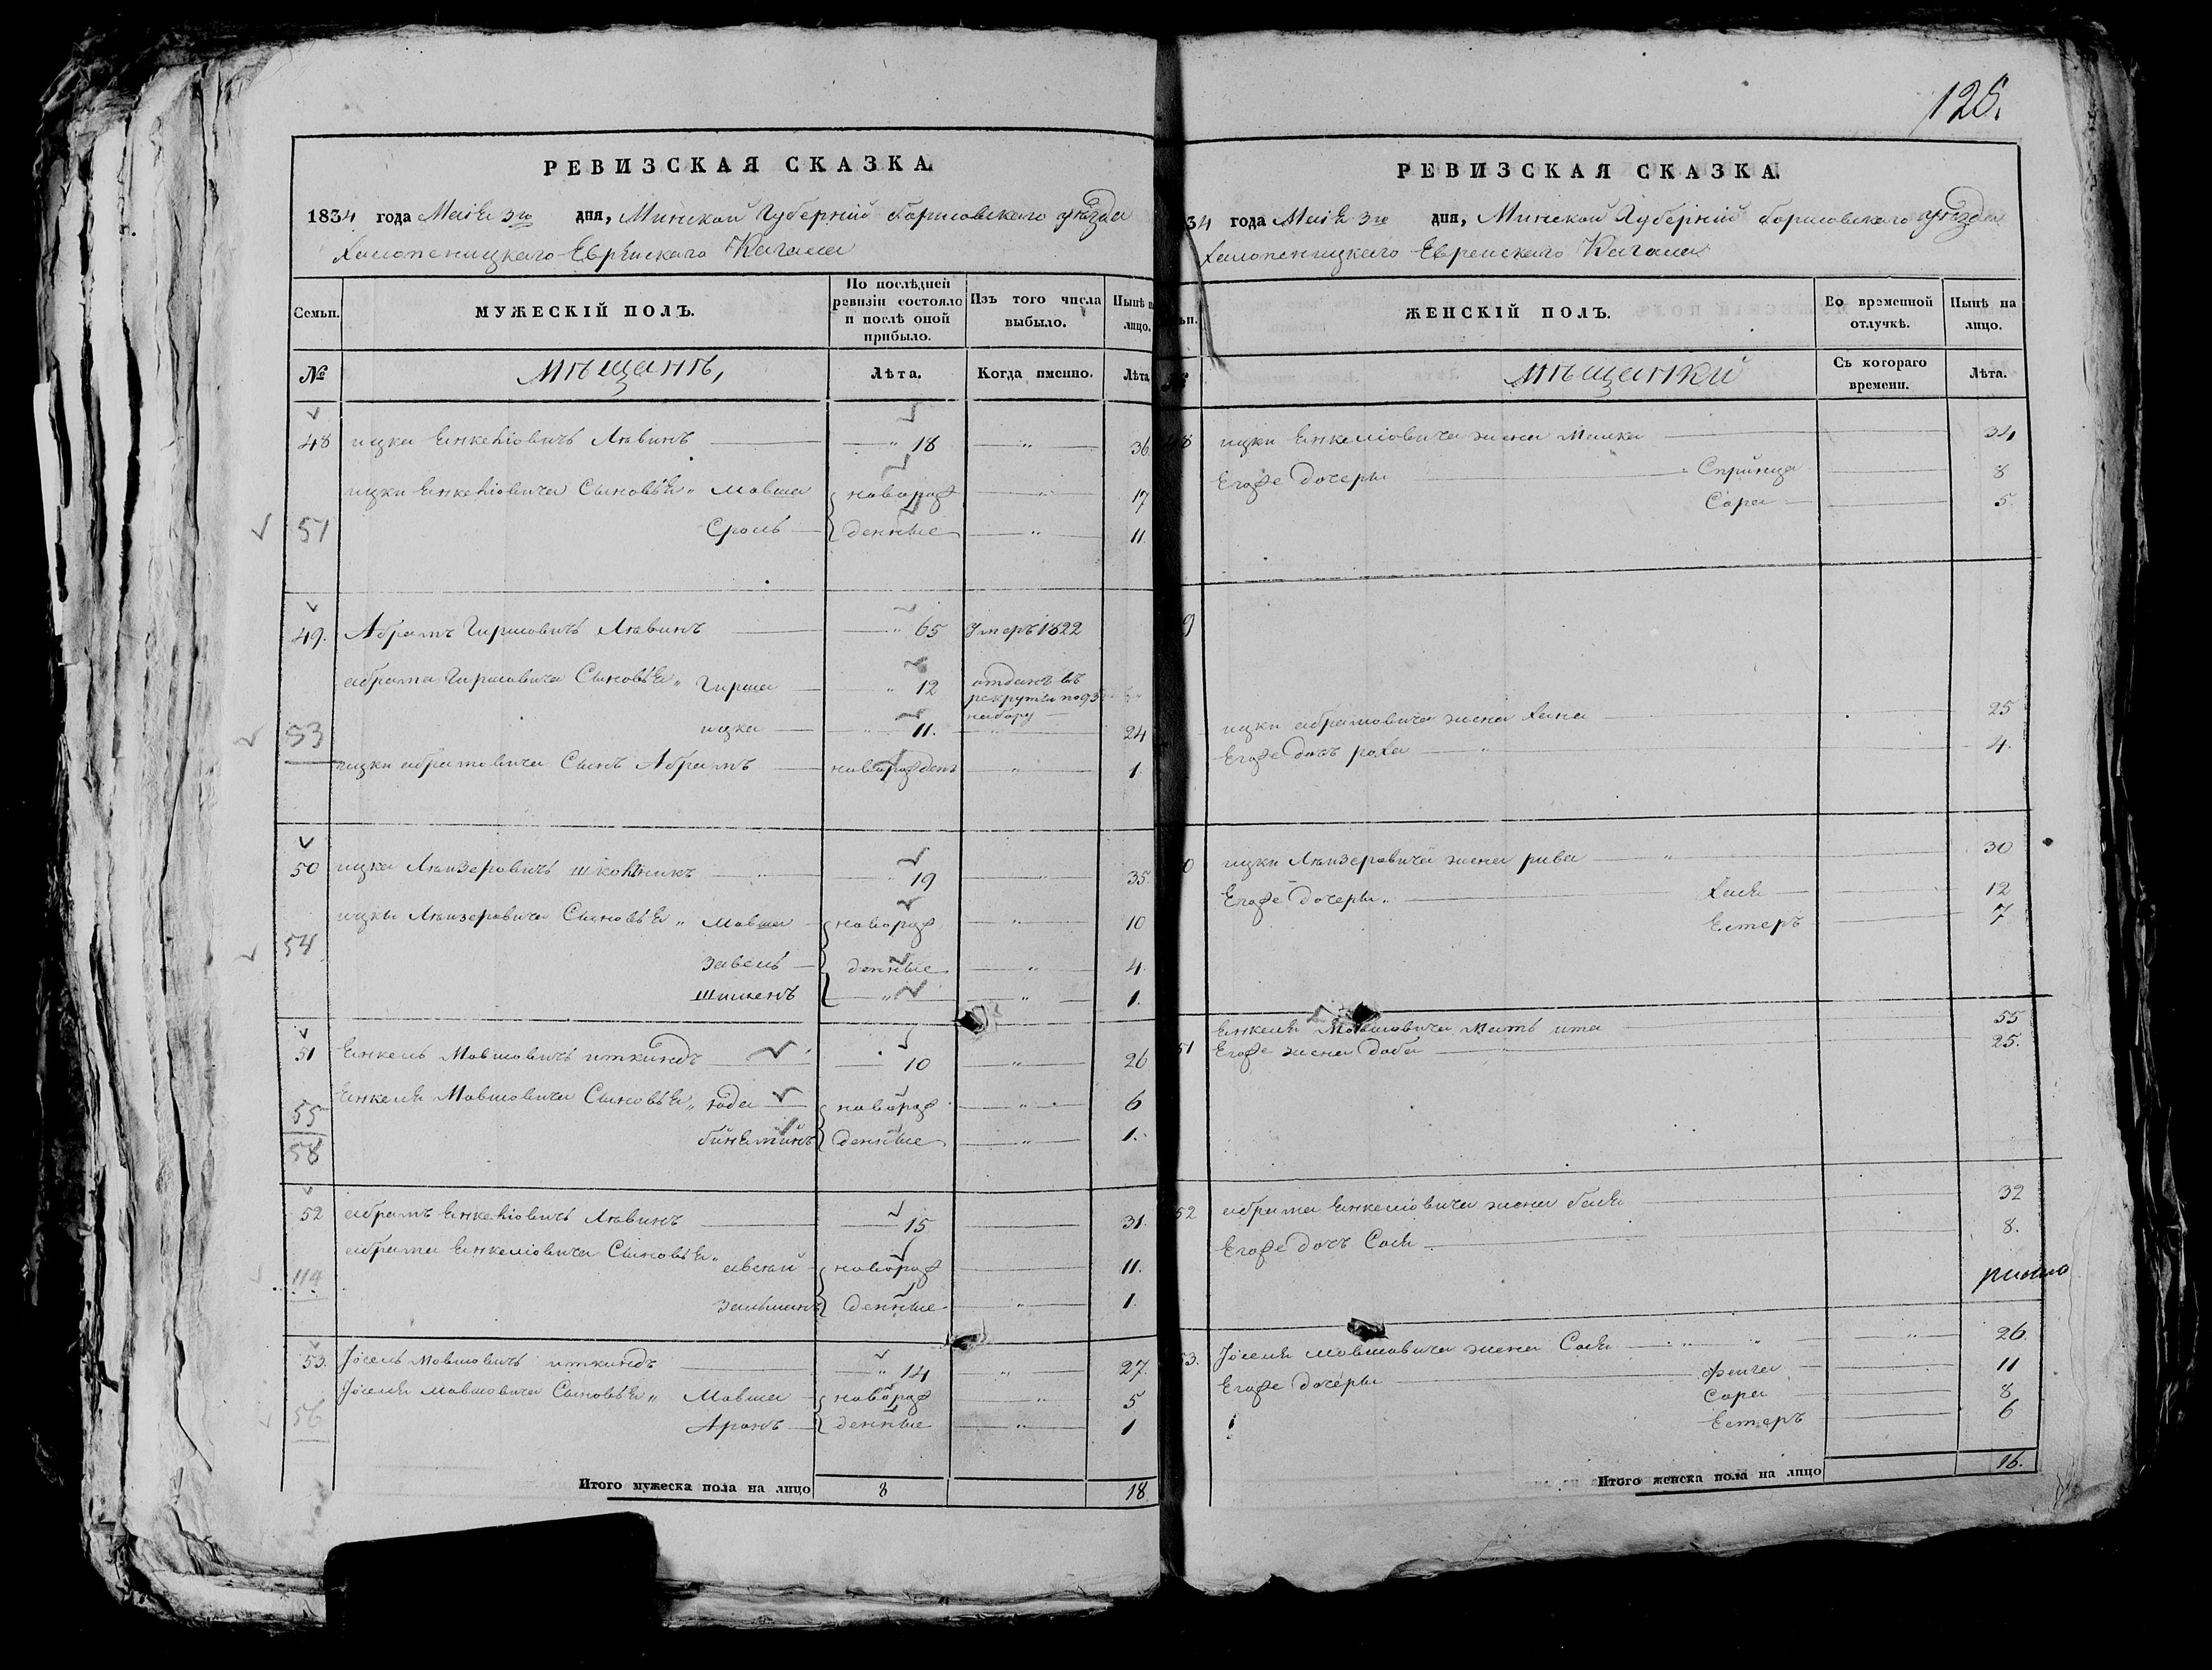 РЕВИЗСКАЯ СКАЗКА
1834 года Маія 3го дня, Минской Губерніи Борисовскаго уѣзда
Халопеницкаго Еврейскаго Кагала
Семьи.
МУЖЕСКІЙ ПОЛЪ.
По послѣдней ревизіи состояло и послѣ оной прибыло.
Изъ того числа выбыло.
Нынѣ на лицо.
№
Мѣщанъ,
Лѣта.
Когда именно.
Лѣта
48 ицка Енкеліовичъ Лѣвинъ 18 36
ицки Енкеліовича Сыновья Мовша новорож 17
51 Сроль денные 11
49. Абрамъ Гиршовичъ Лѣвинъ 65 Умеръ 1822
абрама Гиршовича Сыновья Гирша 12 отданъ въ рекруты по 93 набору
53 ицка 11. 24
ицки абрамовича Сынъ Абрамъ новорожденъ 1
50 ицка Лѣизеровичъ школникъ 19 35.
ицки Лѣизеровича Сыновья Мовша новорож 10
54 Завель денные 4
Шименъ 1.
51 Енкель Мовшовичъ иткиндъ 10 26
Енкеля Мовшовича Сыновья Юда новорож 6
55 биніаминъ денные 1.
58
52 абрамъ Енкеліовичъ Лѣвинъ 15 31.
абрама Енкеліовича Сыновья новорож 11.
114 Залманъ денные 1.
53. Іосель Мовшовичъ иткиндъ 14 27
Іоселя Мовшовича Сыновья Мовша новорож 5
56 Аронъ денные 1
Итого мужеска пола на лицо 8 18
125.
РЕВИЗСКАЯ СКАЗКА.
34 года Маія 3го дня, Минской Губерніи Борисовскаго уѣзда
Халопеницкаго Еврейскаго Кагала
ЖЕНСКІЙ ПОЛЪ.
Во временной отлучкѣ.
Нынѣ на лицо.
Мѣщанки
Съ котораго времени.
Лѣта.
48 ицки Енкеліовича жена Малка 34
Егоже дочеры Спринца 8
Сора 5.
9
ицки абрамовича жена Хана 25
Егоже дочъ роха 4.
0 ицки Лѣизеровича жена рива 30
Егоже дочеры Хася 12
Естеръ 7
Енкеля Мовшовича Мать ита 55
51 Егоже жена доба 25.
52 абрама Енкеліовича жена бася 32
Егоже дочъ Сося 8.
3. Іоселя Мовшовича жена Сося 26.
Егоже дочеры фейга 11
Сора 8
Естеръ 6
Итого женска пола на лицо 16.